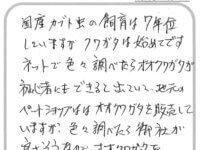 国産カブト虫の飼育は7年位
していますが クワガタは始めてです
ネットで色々調べたらオオクワガタが
初心者にもできると出ていて、地元の
ペットショップはオオクワガタを販売して
いますが、色々調べたら御社が
オオクワガタを